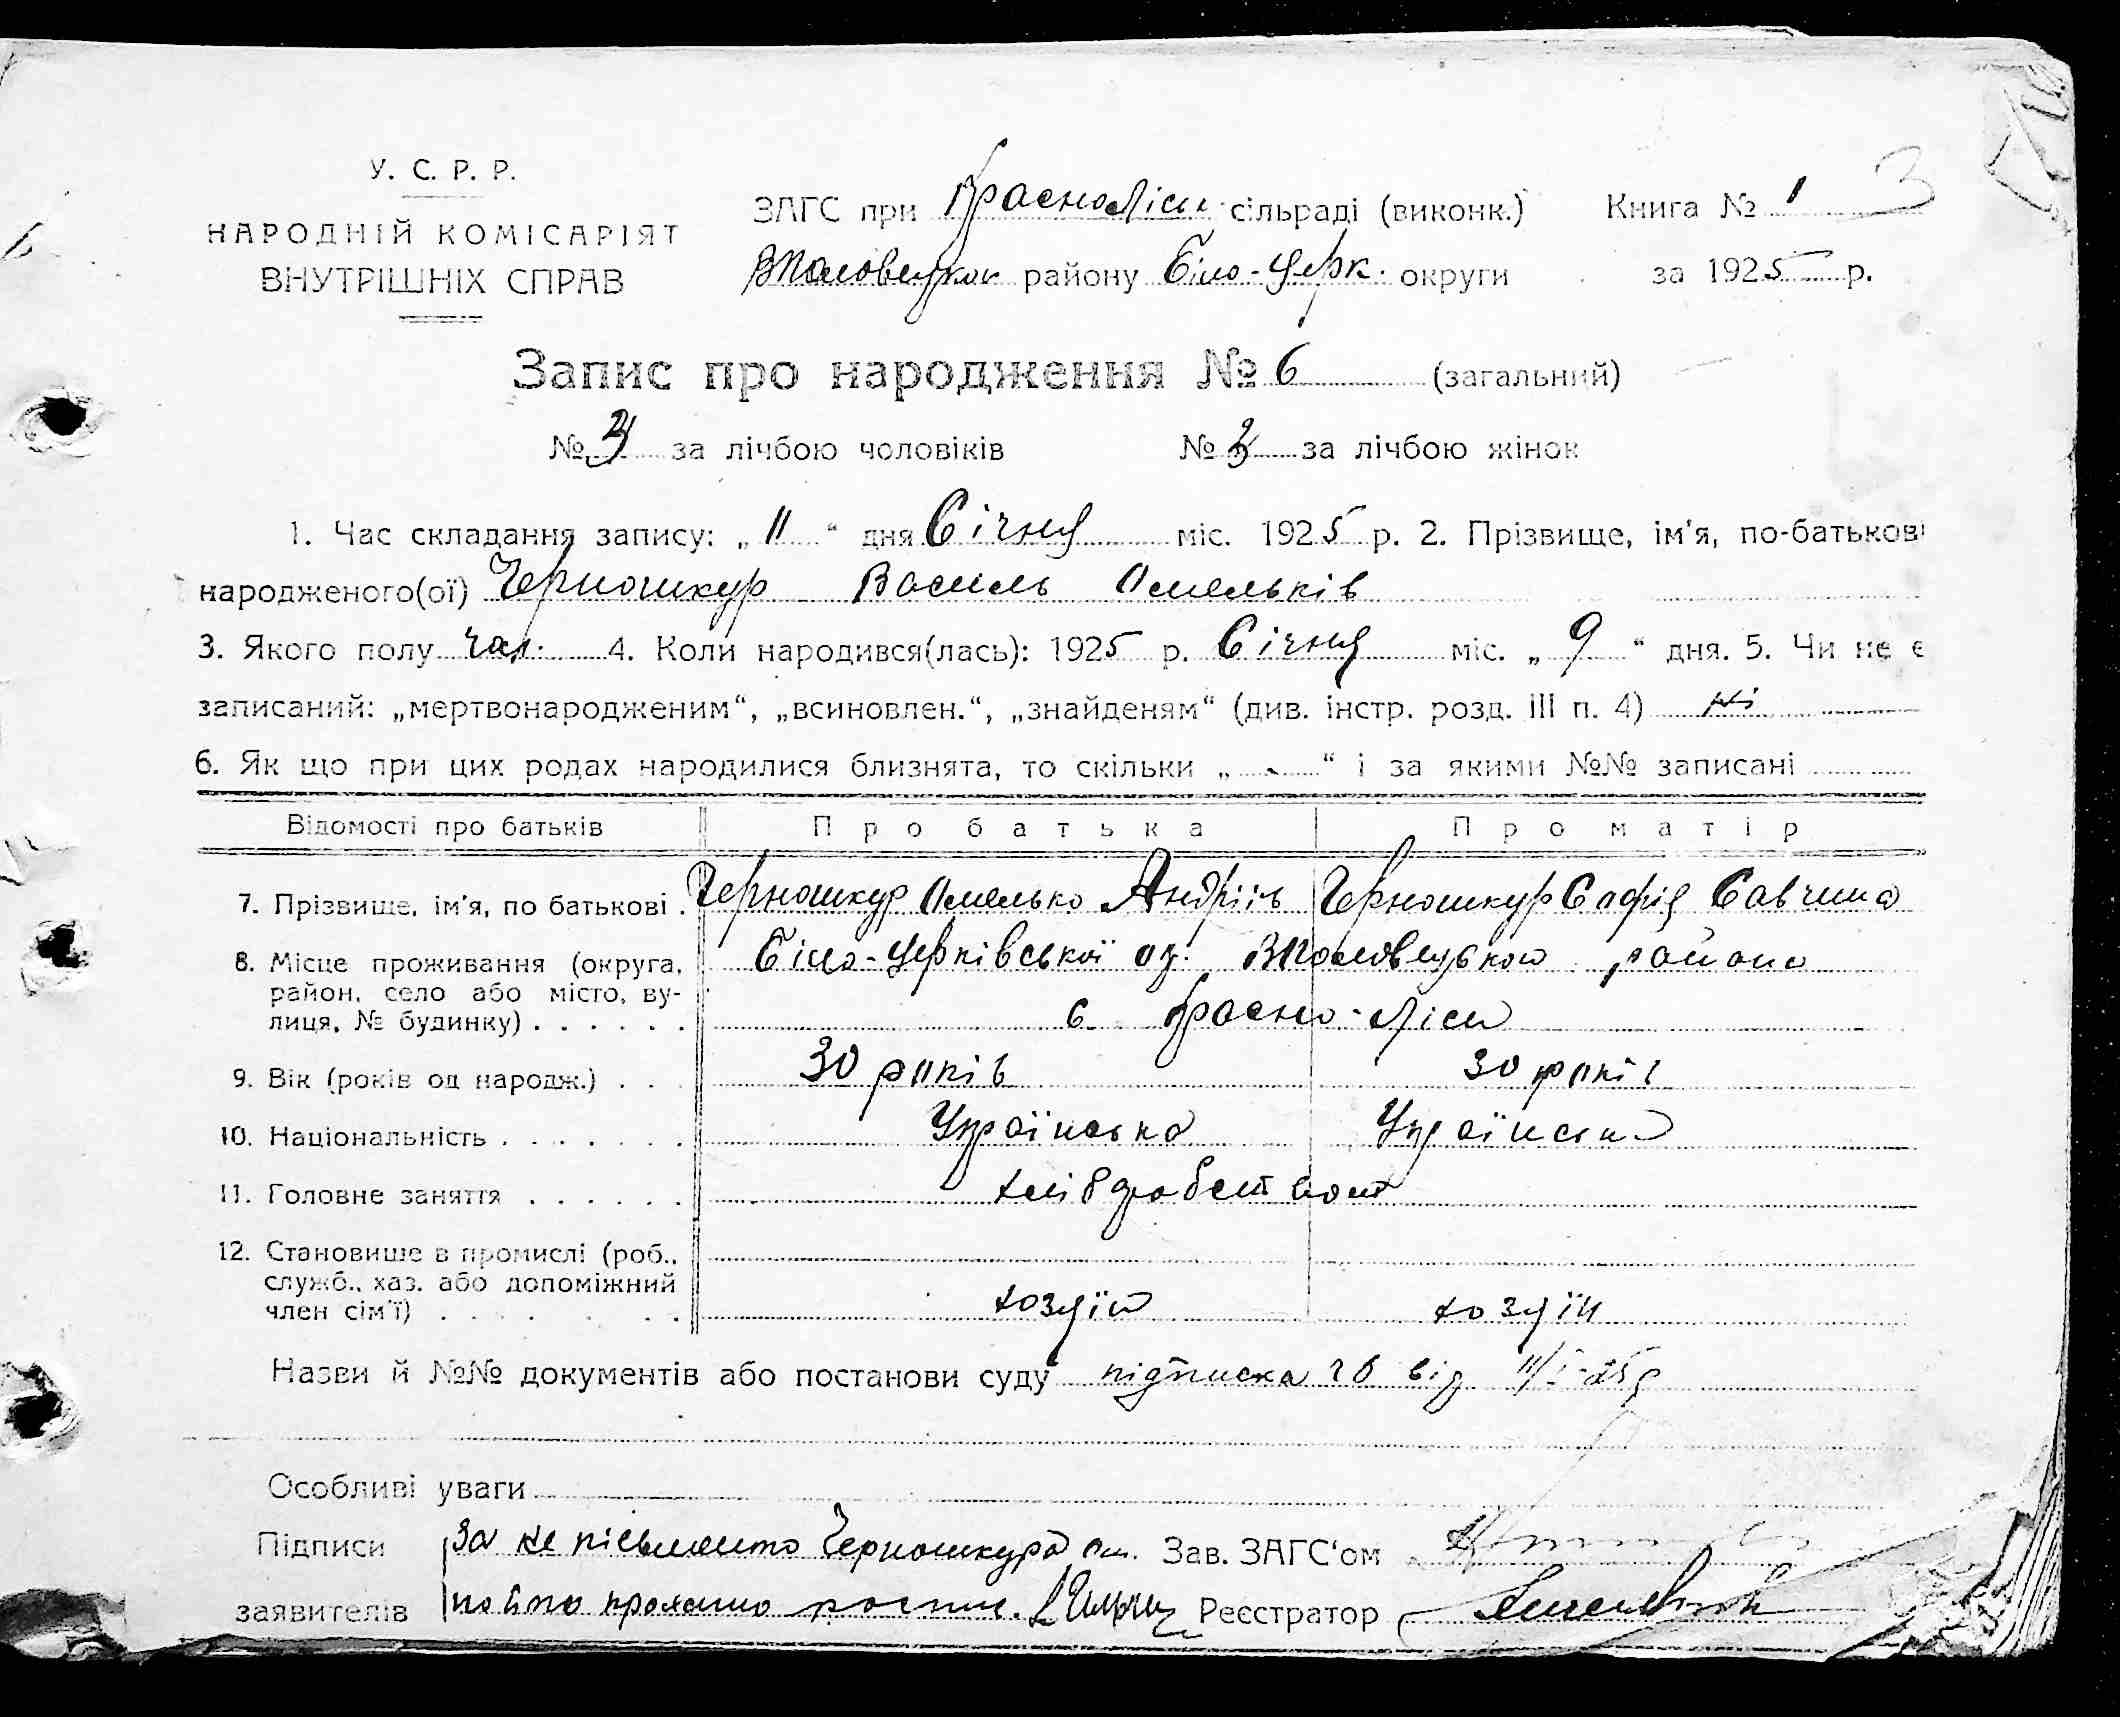 У. С. Р. Р.
НАРОДНІЙ КОМІСАРІЯТ
ВНУТРІШНІХ СПРАВ
ЗАГС при Красноліськ. сільраді (виконк.) Книга № 1 3
району Біло-Церк. округи за 1925 р.
Запис про народження № 6 (загальний)
№ за лічбою чоловіків № за лічбою жінок
1. Час складання запису: „ 11 “ дня Січня міс. 1925 р. 2. Прізвище, ім'я, по-батькові
народженого(ої) Черношкур Василь Омельків
3. Якого полу чол. 4. Коли народився(лась): 1925 р. Січня міс. „ 9 “ дня. 5. Чи не є
записаний: „мертвонародженим“, „всиновлен.“, „знайденям“ (див. інстр. розд. III п. 4) ні
6. Як що при цих родах народилися близнята, то скільки „ - “ і за якими №№ записані
Відомості про батьків Про батька Про матір
7. Прізвище, ім'я, по батькові . Черношкур Омелько Андріїв Черношкур Софія Савчина
8. Місце проживання (округа, Біло-Церківської ок. району
район, село або місто, ву-
лиця, № будинку) . . . . . . с. Красно-Ліси
9. Вік (років од народж.) . . . 30 років 30 років
10. Національність . . . . . . . Українська Українська
11. Головне заняття . . . . . . хліборобство
12. Становище в промислі (роб.,
служб., хаз. або допоміжний
член сім'ї) . . . . . . . хозяїн хозяїн
Назви й №№ документів або постанови суду підписка від 11/I-25 р
Особливі уваги
Підписи За не письменого Черношкура Ом. Зав. ЗАГС'ом
заявителів по його проханню роспис. Реєстратор